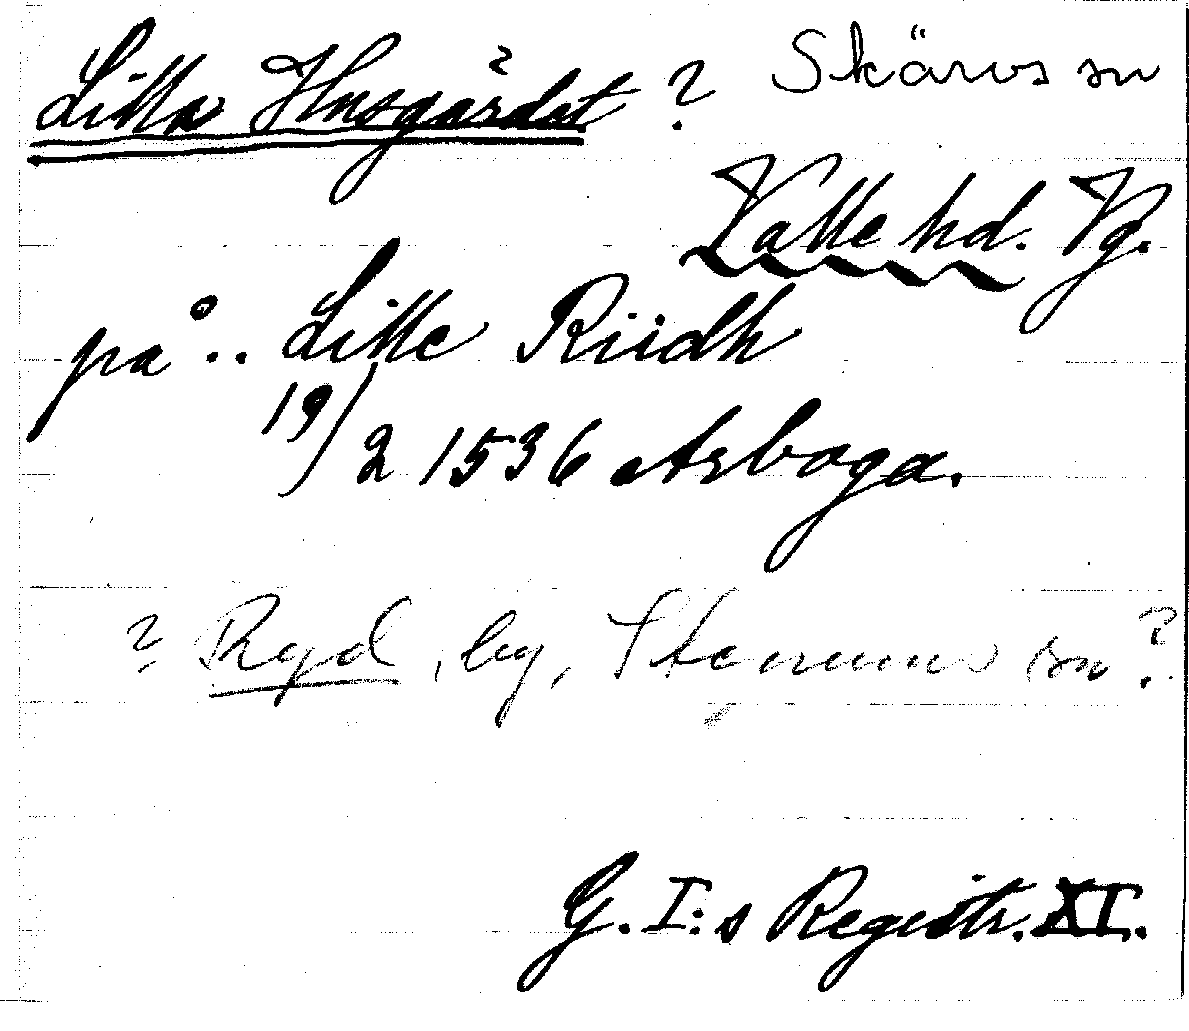 Litla Husgärdet ? Skärvs sn
Valle hd. Vg.
på .. Litle Riidh
19/2 1536 Arboga.
? Ryd, by, Stenums sn ?
G. I:s Registr. XI.